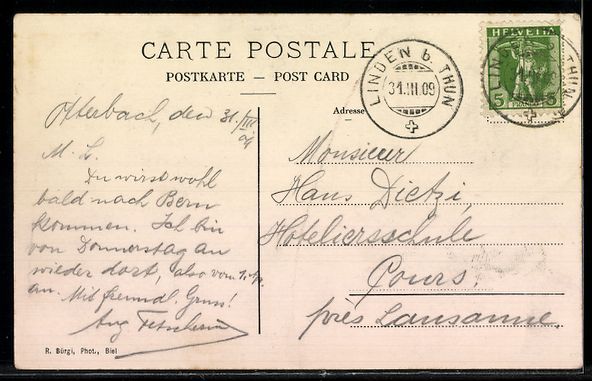 CARTE POSTALE
POSTKARTE — POST CARD
LINDEN b. THUN
31.III.09
HELVETIA
5 5
LINDEN b. THUN
Adresse
Otterbach, den 31./III 09
M. L.
Du wirst wohl
bald nach Bern
kommen. Ich bin
von Donnerstag an
wieder dort, also vom 1. Ap.
an. Mit freundl. Gruss!
Aug
Monsieur
Hans Dietzi,
Hoteliersschule
Cours
près Lausanne.
R. Bürgi, Phot., Biel